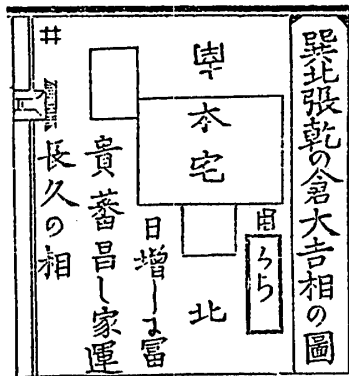 巽北張乾の倉大吉相の圖
本宅
くら
北
日増しに富
貴蕃昌し家運
長久の相
井